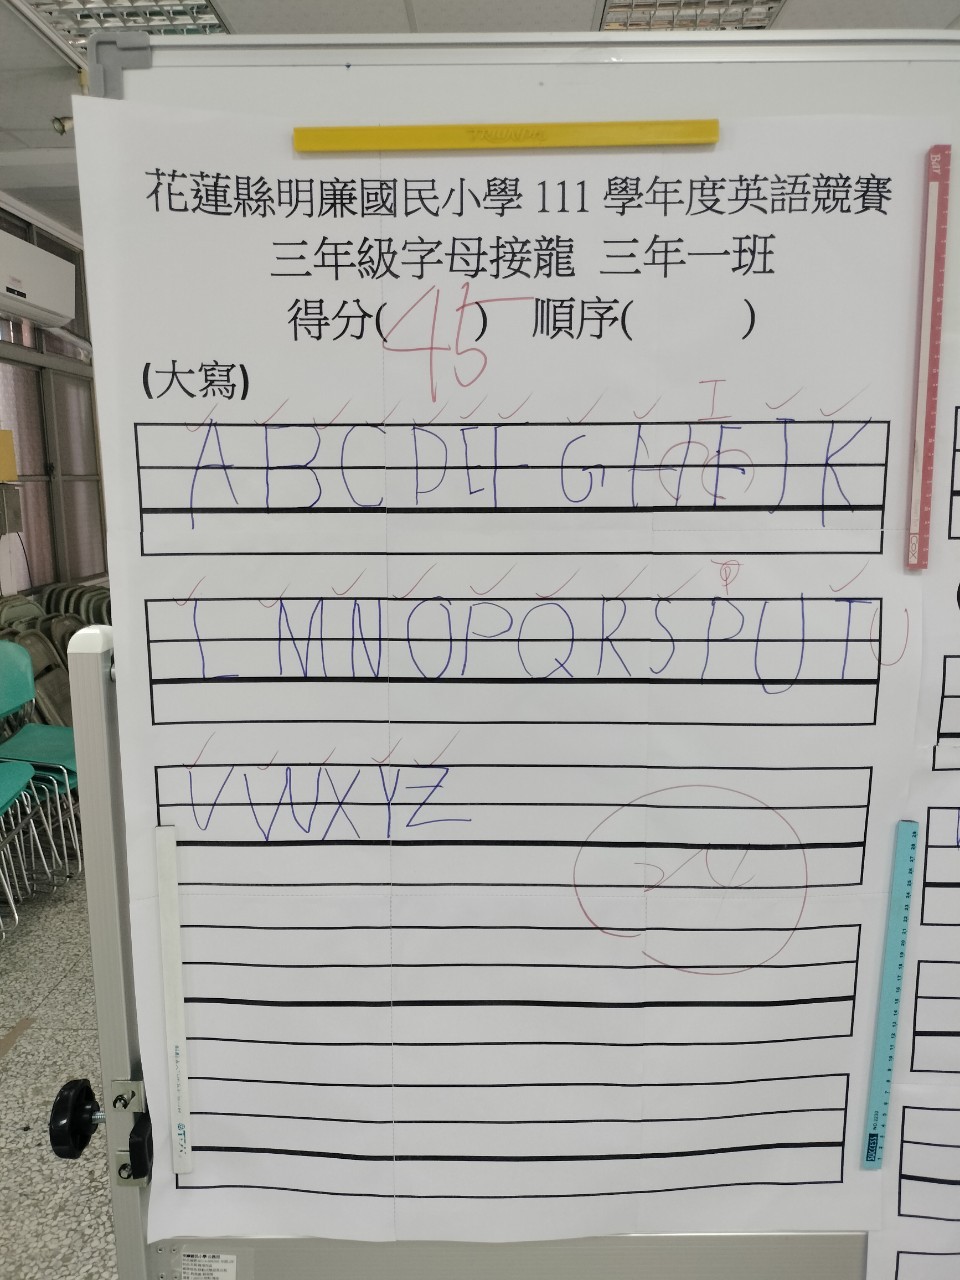 花蓮縣明廉國民小學 111 學年度英語競賽
三年級字母接龍 三年一班
得分(45) 順序( )
(大寫)
I
A B C D E F G H F J K
P
L M N O P Q R S P U T U
V W X Y Z
24
SUCCESS